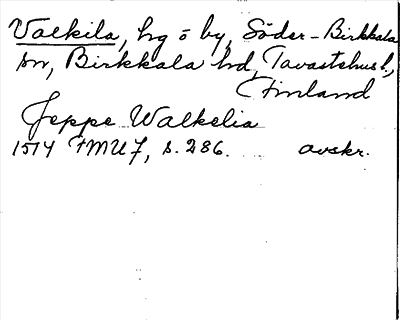 Valkila, hg o by, Söder-Birkkala
sn, Birkkala hd, Tavastehus l.,
Finland
Jeppe Walkelia
1514 FMU 7, s. 286. avskr.